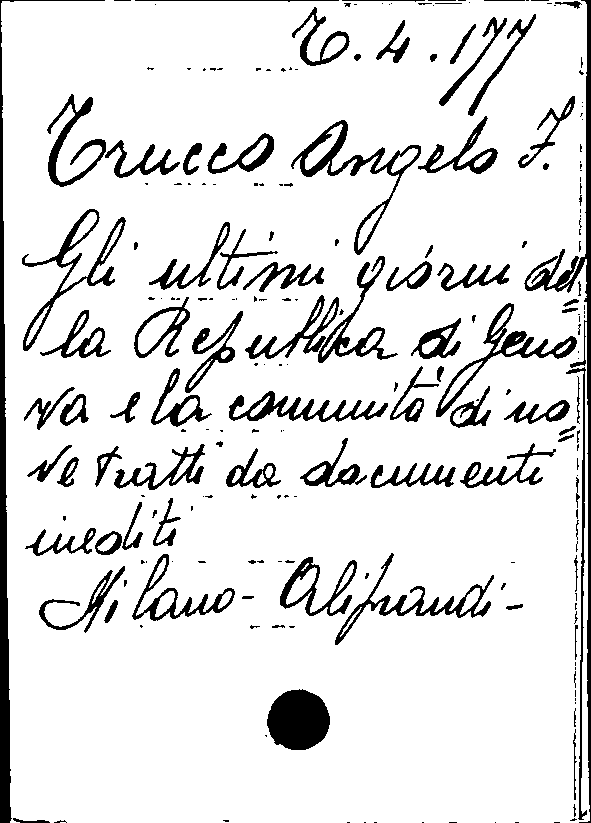 T. 4. 177
Trucco Angelo F.
Gli ultimi giorni del=
la Repubblica di Geno=
va e la comunità di no=
ve tratti da documenti
inediti
Milano - Aliprandi -